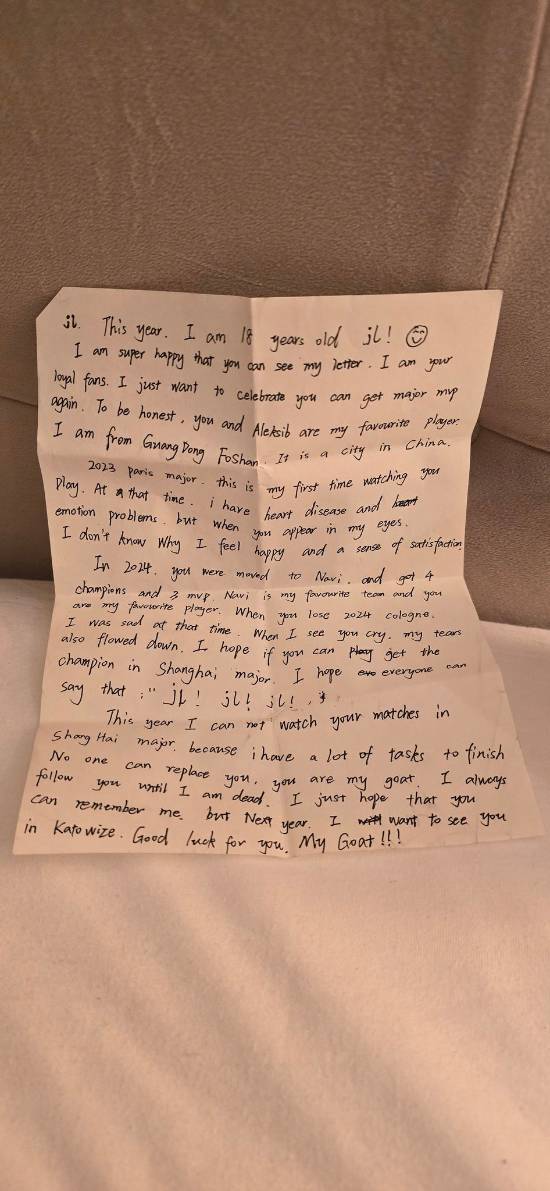 jl. This year. I am 18 years old jl! ☺
I am super happy that you can see my letter. I am your
loyal fans. I just want to celebrate you can get major mvp
again. To be honest, you and Aleksib are my favourite player.
I am from GuangDong FoShan. It is a city in China.
2023 paris major. this is my first time watching you
play. At that time. i have heart disease and heart
emotion problems. but when you appear in my eyes.
I don't know Why I feel happy and a sense of satisfaction
In 2024. you were moved to Navi. and got 4
champions and 3 mvp. Navi is my favourite team and you
are my favourite player. When you lose 2024 cologne.
I was sad at that time. When I see you cry. my tears
also flowed down. I hope if you can play get the
champion in Shanghai major. I hope eve everyone can
say that :" jL! jl! jl!."
This year I can not watch your matches in
ShangHai major. because i have a lot of tasks to finish
No one can replace you, you are my goat. I always
follow you until I am dead. I just hope that you
can remember me. but Next year. I want to see you
in Katowize. Good luck for you. My Goat!!!